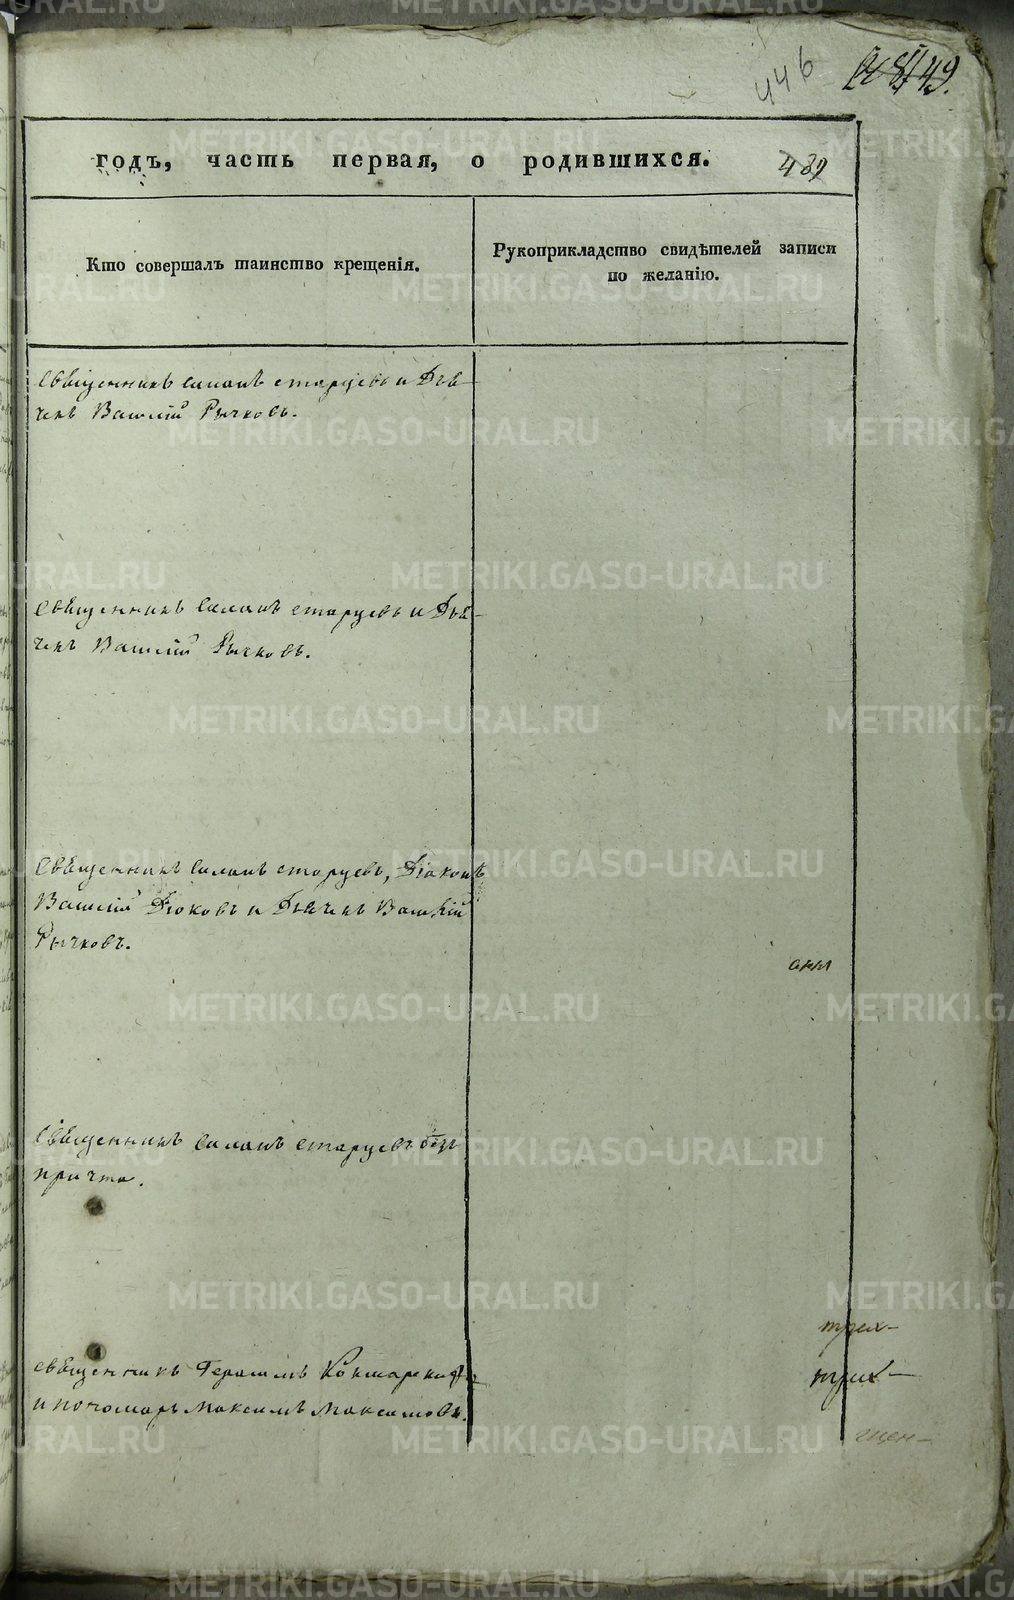 446
годъ, часть первая, о родившихся.
Кто совершалъ таинство крещенія.
Рукоприкладство свидѣтелей записи
по желанію.
Священникъ Симонъ Старцевъ и Дья-
чекъ Василій Рычковъ.
Священникъ Симонъ Старцевъ и Дья-
чекъ Василій Рычковъ.
Священникъ Симонъ Старцевъ, Діаконъ
Василій Дюковъ и Дьячекъ Василій
Рычковъ.
Священникъ Симонъ Старцевъ безъ
причта.
Священникъ Герасимъ
и пономарь Максимъ Максимовъ.
METRIKI.GASO-URAL.RU